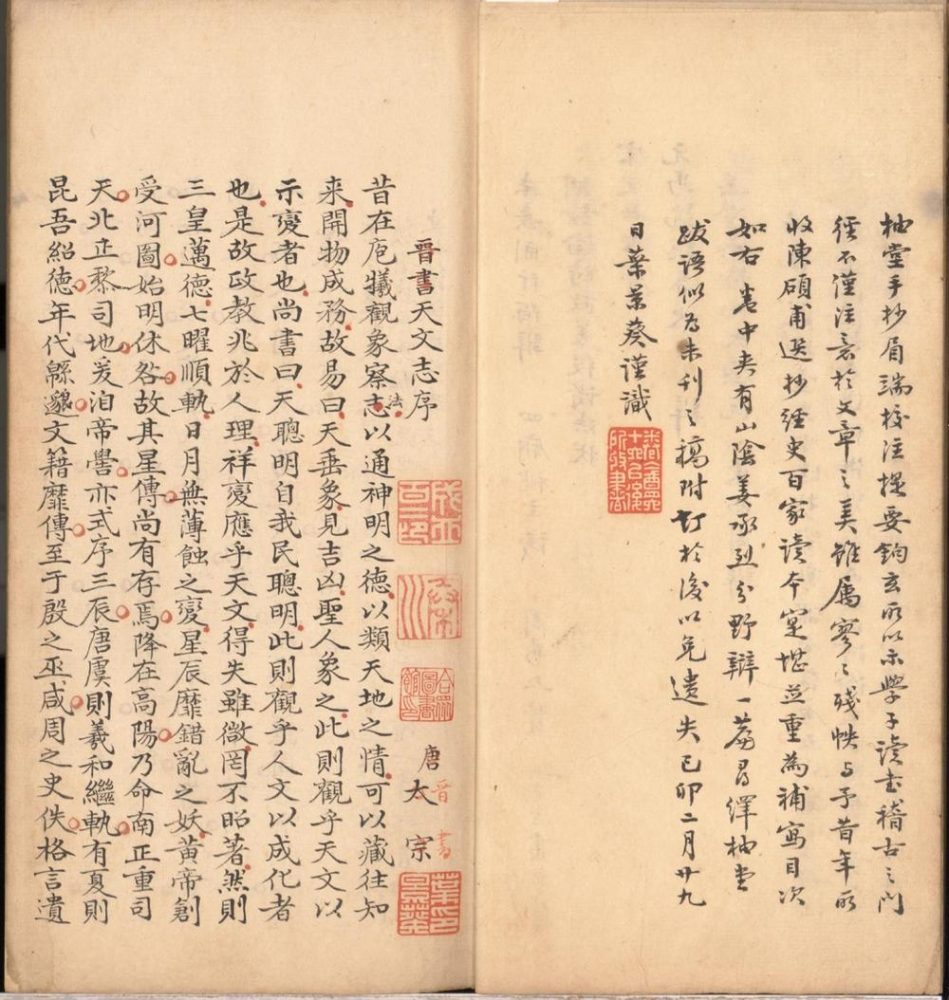 柚堂手抄眉端校注提要鈎玄所以示學子讀書稽古之門
徑不僅注意於文章之美雖屬寥〻殘帙与予昔年所
收陳碩甫選抄經史百家讀本寔堪並重為補寫目次
如右卷中夾有山陰姜承烈分野辯一篇尋繹柚堂
跋語似為未刊之稿附訂於後以免遺失己卯二月廿九
日葉景葵謹識
晉書天文志序
晉書
唐太宗
葉景葵印
昔在庖犧觀象察志以通神明之德以類天地之情可以藏往知
法
来開物成務故易曰天垂象見吉凶聖人象之此則觀乎天文以
示變者也尚書曰天聰明自我民聰明此則觀乎人文以成化者
也是故政教兆於人理祥變應乎天文得失雖微罔不昭著然則
三皇邁德七曜順軌日月無薄蝕之變星辰靡錯亂之妖黃帝創
受河圖始明休咎故其星傳尚有存焉降在高陽乃命南正重司
天北正黎司地爰洎帝嚳亦式序三辰唐虞則羲和繼軌有夏則
昆吾紹德年代緜邈文籍靡傳至于殷之巫咸周之史佚格言遺